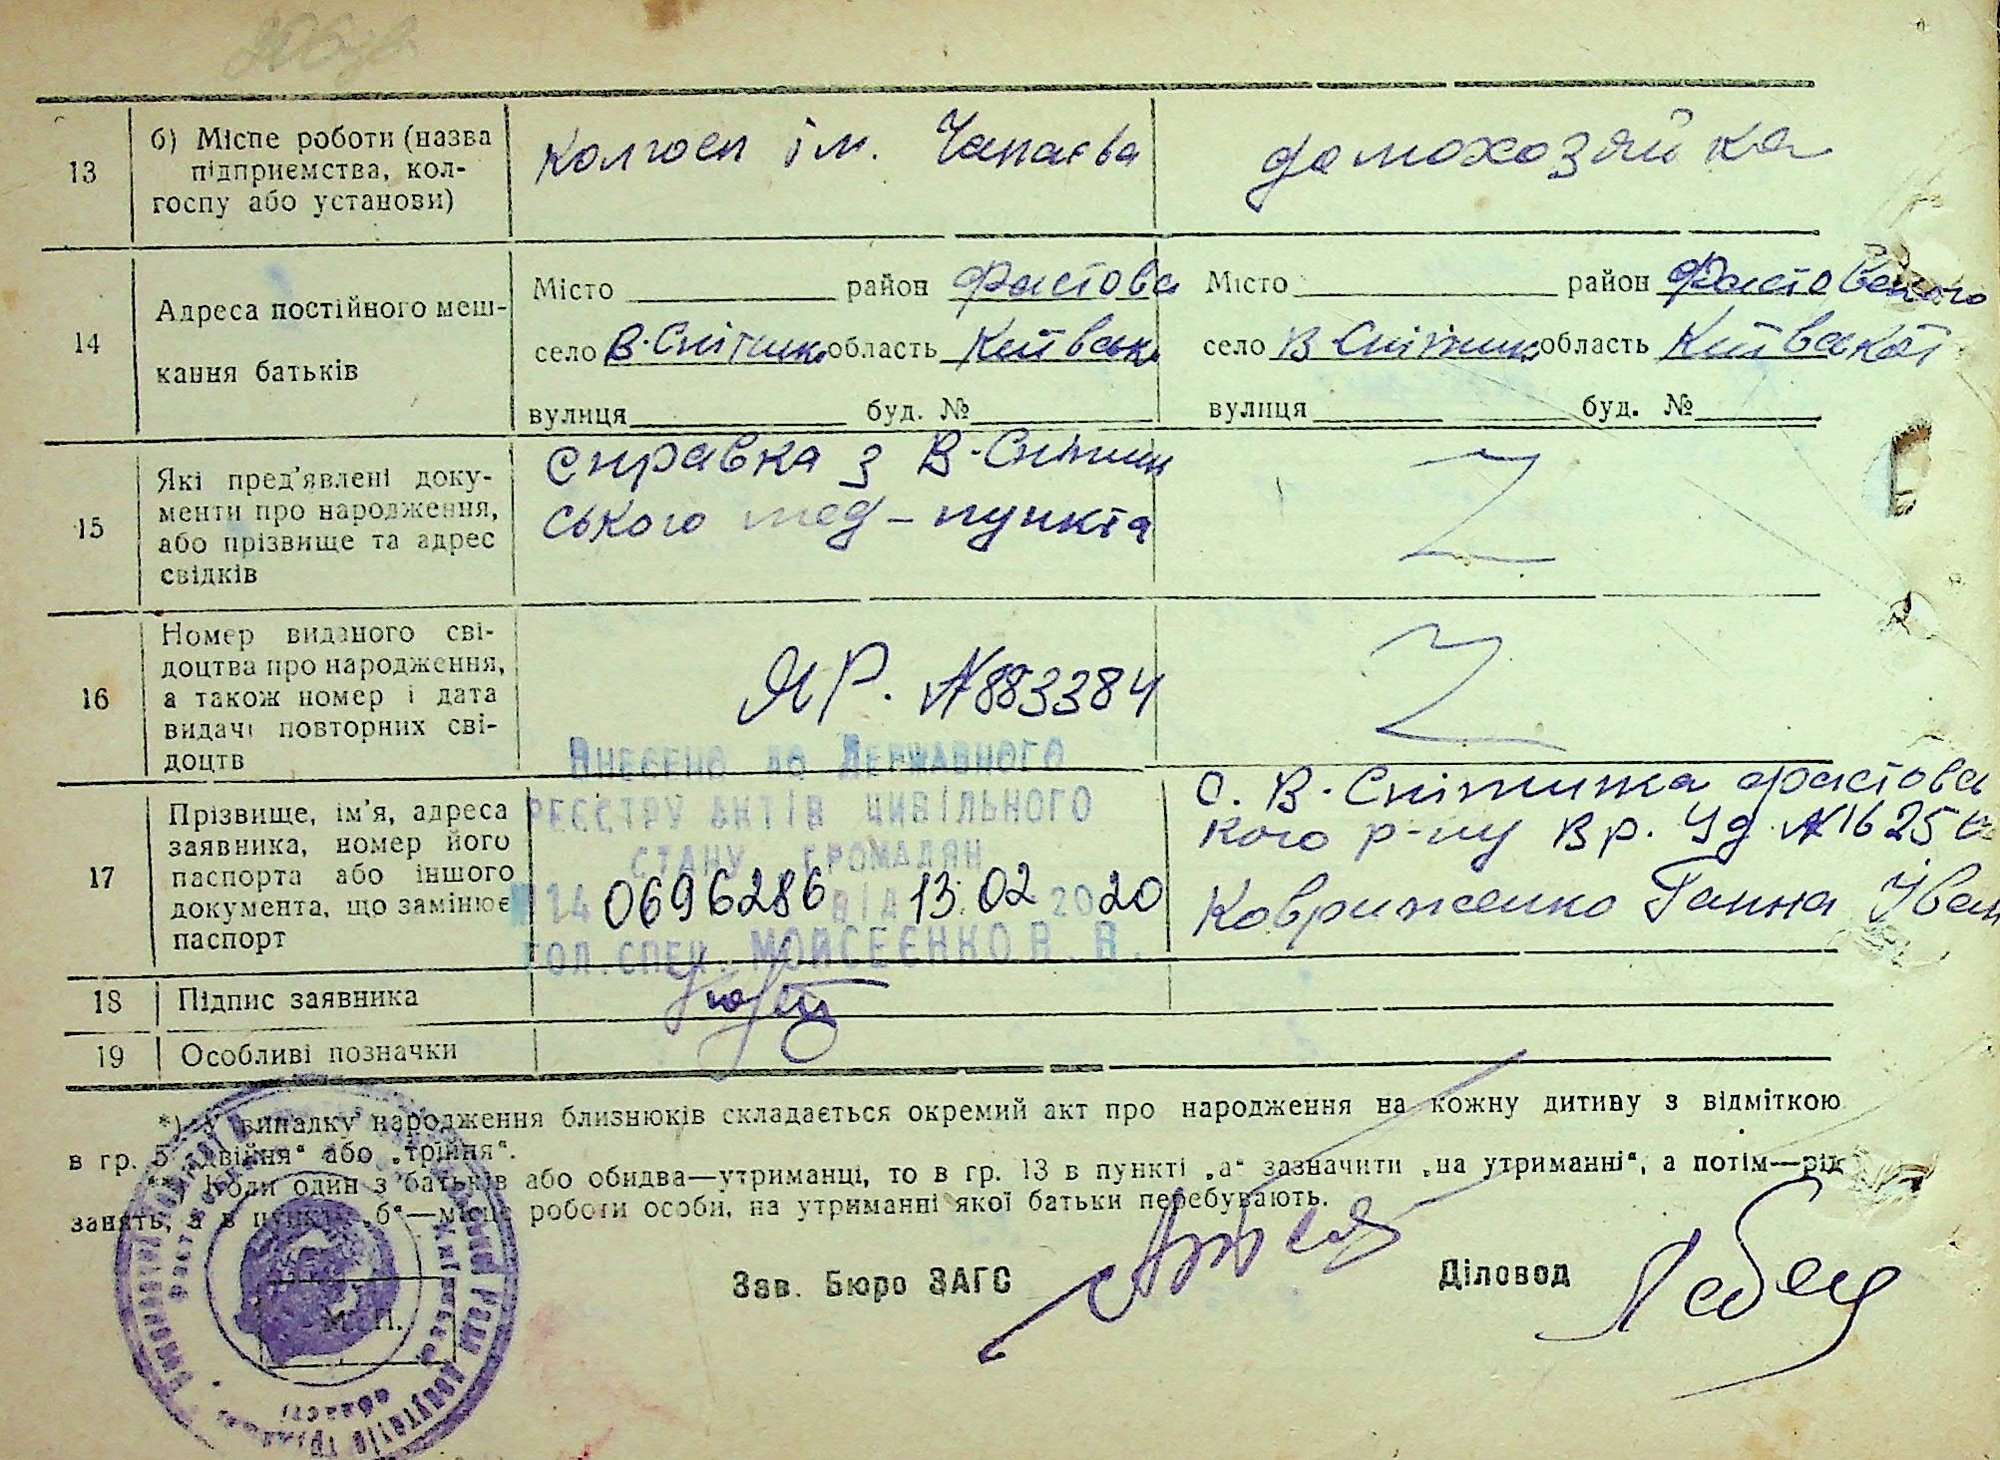 13
б) Місце роботи (назва
підприємства, кол-
госпу або установи)
колгосп ім. Чапаєва
домохозяйка
14
Адреса постійного меш-
кання батьків
Місто район Фастовс
село В-Снітинк область Київськ
вулиця буд. №
Місто район Фастовського
село В-Снітинк область Київської
вулиця буд. №
15
Які пред'явлені доку-
менти про народження,
або прізвище та адрес
свідків
справка з В-Снітин
ського мед-пункта
16
Номер виданого сві-
доцтва про народження,
а також номер і дата
видачі повторних сві-
доцтв
ЯР. №883384
17
Прізвище, ім'я, адреса
заявника, номер його
паспорта або іншого
документа, що замінює
паспорт
Внесено до Державного
реєстру актів цивільного
стану громадян
0696286 від 13.02 2020
Гол.спец. Мойсеєнко В. В.
с. В-Снітинка Фастовс
кого р-ну Вр. Уд. №1625
Ковриженко Ганна Іван
18
Підпис заявника
19
Особливі позначки
*) У випадку народження близнюків складається окремий акт про народження на кожну дитиву з відміткою
в гр. 5 „двійня“ або „трійня“.
**) Коли один з батьків або обидва—утриманці, то в гр. 13 в пункті „а“ зазначити „на утриманні“, а потім—рід
занять, а в пункті „б“—місце роботи особи, на утриманні якої батьки перебувають.
М. П.
Зав. Бюро ЗАГС
Діловод